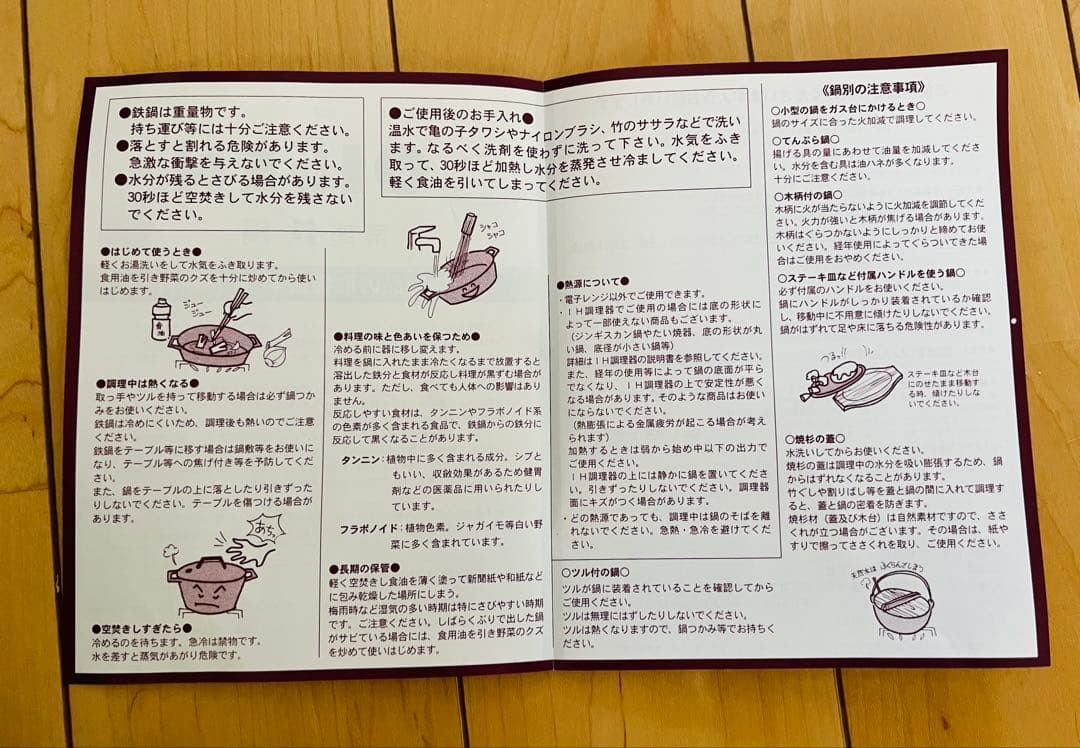 ●鉄鍋は重量物です。
持ち運び等には十分ご注意ください。
●落とすと割れる危険があります。
急激な衝撃を与えないでください。
●水分が残るとさびる場合があります。
30秒ほど空焚きして水分を残さない
でください。
●ご使用後のお手入れ●
温水で亀の子タワシやナイロンブラシ、竹のササラなどで洗い
ます。なるべく洗剤を使わずに洗って下さい。水気をふき
取って、30秒ほど加熱し水分を蒸発させ冷ましてください。
軽く食油を引いてしまってください。
●はじめて使うとき●
軽くお湯洗いをして水気をふき取ります。
食用油を引き野菜のクズを十分に炒めてから使い
はじめます。
ジュー
ジュー
食油
●調理中は熱くなる●
取っ手やツルを持って移動する場合は必ず鍋つか
みをお使いください。
鉄鍋は冷めにくいため、調理後も熱いのでご注意
ください。
鉄鍋をテーブル等に移す場合は鍋敷等をお使いに
なり、テーブル等への焦げ付き等を予防してくだ
さい。
また、鍋をテーブルの上に落としたり引きずった
りしないでください。テーブルを傷つける場合が
あります。
あちっ
●空焚きしすぎたら●
冷めるのを待ちます。急冷は禁物です。
水を差すと蒸気があがり危険です。
シャコ
シャコ
●料理の味と色あいを保つため●
冷める前に器に移し変えます。
料理を鍋に入れたまま冷たくなるまで放置すると
溶出した鉄分と食材が反応し料理が黒ずむ場合が
あります。ただし、食べても人体への影響はあり
ません。
反応しやすい食材は、タンニンやフラボノイド系
の色素が多く含まれる食品で、鉄鍋からの鉄分に
反応して黒くなることがあります。
タンニン:植物中に多く含まれる成分。シブと
もいい、収斂効果があるため健胃
剤などの医薬品に用いられたりし
ています。
フラボノイド:植物色素。ジャガイモ等白い野
菜に多く含まれています。
●長期の保管●
軽く空焚きし食用油を薄く塗って新聞紙や和紙などに
に包み乾燥した場所にしまう。
梅雨時など湿気の多い時期は特にさびやすい時期
です。ご注意ください。しばらくぶりで出した鍋
がサビている場合には、食用油を引き野菜のクズ
を炒めて使いはじめます。
●熱源について●
・電子レンジ以外でご使用できます。
・IH調理器でご使用の場合には底の形状に
よって一部使えない商品もございます。
(ジンギスカン鍋やたい焼器、底の形状が丸
い鍋、底径が小さい鍋等)
詳細はIH調理器の説明書を参照してください。
また、経年の使用等によって鍋の底面が平ら
でなくなり、IH調理器の上で安定性が悪く
なる場合があります。そのような商品はお使い
にならないでください。
(熱膨張による金属疲労が起こる場合が考え
られます)
加熱するときは弱から始め中以下の出力で
ご使用ください。
IH調理器の上には静かに鍋を置いてくださ
い。引きずったりしないでください。調理器
面にキズがつく場合があります。
・どの熱源であっても、調理中は鍋のそばを離
れないでください。急熱・急冷を避けてくだ
さい。
○ツル付の鍋○
ツルが鍋に装着されていることを確認してから
ご使用ください。
ツルは無理にはずしたりしないでください。
ツルは熱くなりますので、鍋つかみ等でお持ちく
ださい。
《鍋別の注意事項》
○小型の鍋をガス台にかけるとき○
鍋のサイズに合った火加減で調理してください。
○てんぷら鍋○
揚げる具の量にあわせて油量を加減してくださ
い。水分を含む具は油ハネが多くなります。
十分にご注意ください。
○木柄付の鍋○
木柄に火が当たらないように火加減を調節してくだ
さい。火力が強いと木柄が焦げる場合があります。
木柄はぐらつかないようにしっかりと締めてお使
いください。経年使用によってぐらついてきた場合
はご使用をおやめください。
○ステーキ皿など付属ハンドルを使う鍋○
必ず付属のハンドルをお使いください。
鍋にハンドルがしっかり装着されているか確認
し、移動中に不用意に傾けたりしないでください。
鍋がはずれて足や床に落ちる危険性があります。
つるっ!!
ステーキ皿など木台
にのせたまま移動す
る時、傾けたりしな
いでください。
○焼杉の蓋○
水洗いしてからお使いください。
焼杉の蓋は調理中の水分を吸い膨張するため、鍋
からはずれなくなることがあります。
竹ぐしや割りばし等を蓋と鍋の間に入れて調理す
ると、蓋と鍋の密着を防ぎます。
焼杉材(蓋及び木台)は自然素材ですので、ささ
くれが立つ場合がございます。その場合は、紙や
すりで擦ってささくれを取り、ご使用ください。
天然木は ふくらんでしまう